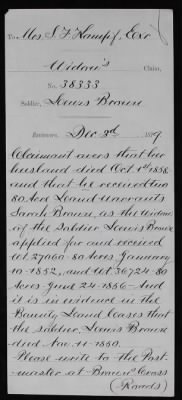 To Mrs S. F. Kampf, Exr
Widow's Claim,
No. 38333
Soldier, Lewis Braun
Dec 3d, 1879
Claimant avers that her
husband died Oct 1st 1856
and that he received two
80 acre Land Warrants
Sarah Braun, as the widow
of the soldier Lewis Braun
applied for and received
Wt 27060-80 acres January
10-1852, and Wt 36724-80
Acres June 24-1856- And
it is in evidence in the
Bounty Land Cases that
the soldier, Lewis Braun
died Nov. 11-1850.
Please write to the Post-
master at Braun's Cross
(Roads)